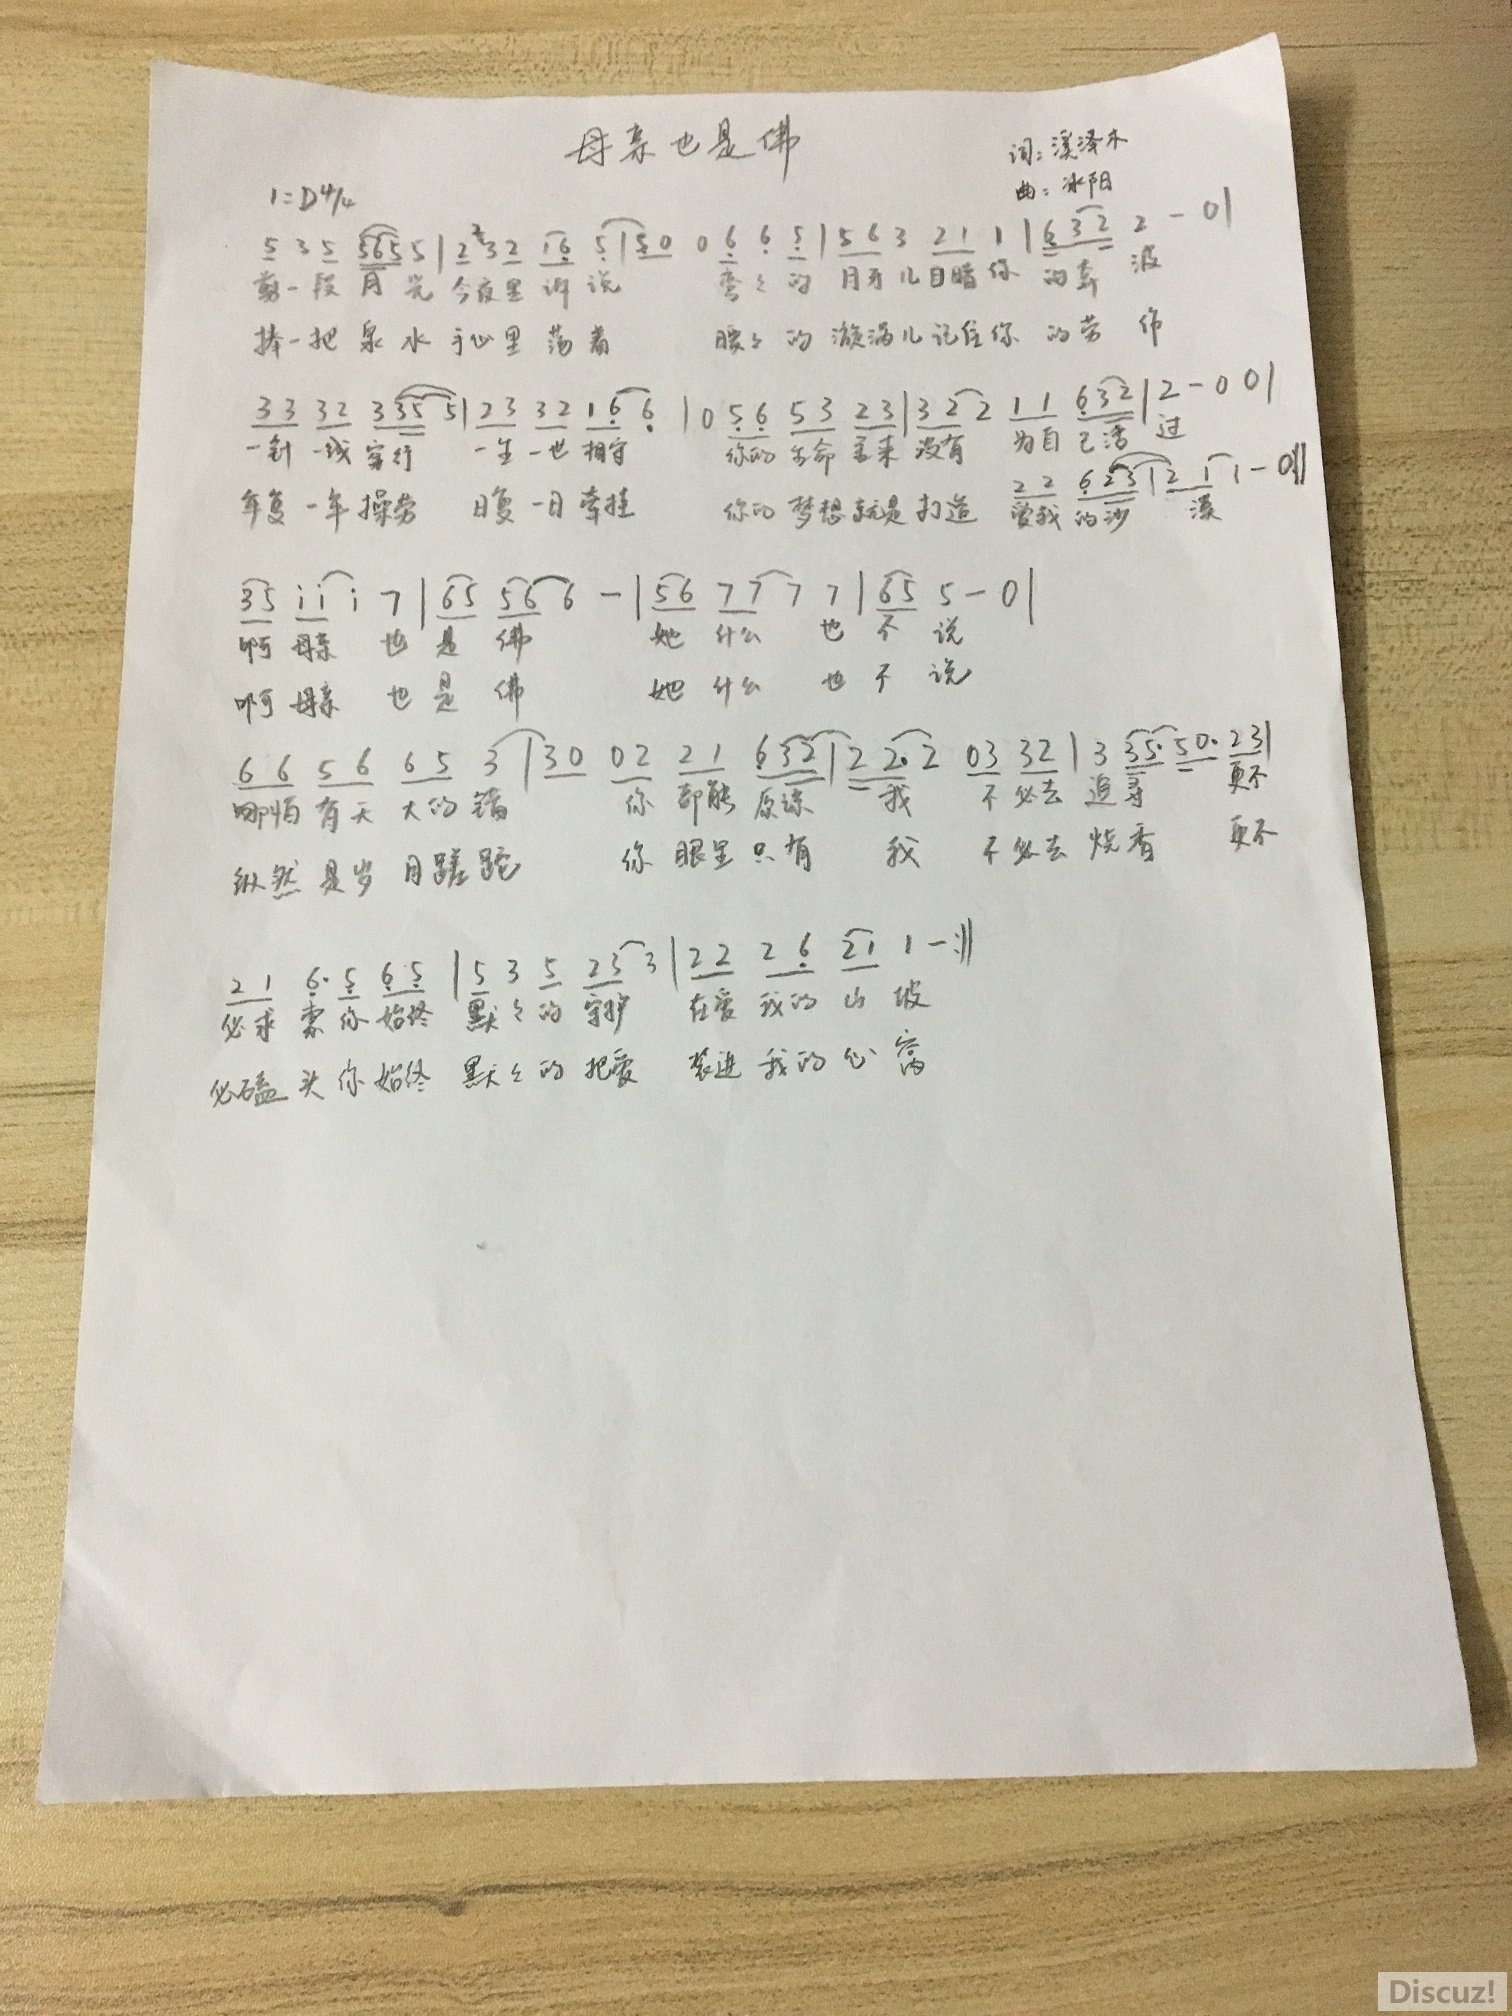 母亲也是佛
词：溪泽木
1=D 4/4
曲：冰阳
5 3 5 5655|2 32 16 5|50 0 6 6 5|56 3 21 1|632 2 - 0|
剪一段月光今夜里诉说 弯々的月牙儿目睹你的奔波
捧一把泉水手心里荡着 腰々的漩涡儿记住你的劳作
33 32 335 5|23 32 16 6|0 56 53 23|32 2 11 632|2 - 0 0|
一针一线穿行 一生一世相守 你的生命里来没有为自己活过
22 623|2 1 1 - 0‖
年复一年操劳 日复一日牵挂 你的梦想就是打造爱我的沙漠
35 i i i 7|65 56 6 -|56 77 7 7|65 5 - 0|
啊母亲也是佛 她什么也不说
啊母亲也是佛 她什么也不说
66 56 65 3|30 02 21 632|2 2· 2 03 32|3 35· 50· 23|
哪怕有天大的错 你却能原谅我 不必去追寻 更不
纵然是岁月蹉跎 你眼里只有我 不必去烧香 更不
21 6· 5 65|5 3 5 23 3|22 26 21 1 -:‖
必求索你始终默々的守护在爱我的山坡
必磕头你始终默々的把爱装进我的心窝
Discuz!